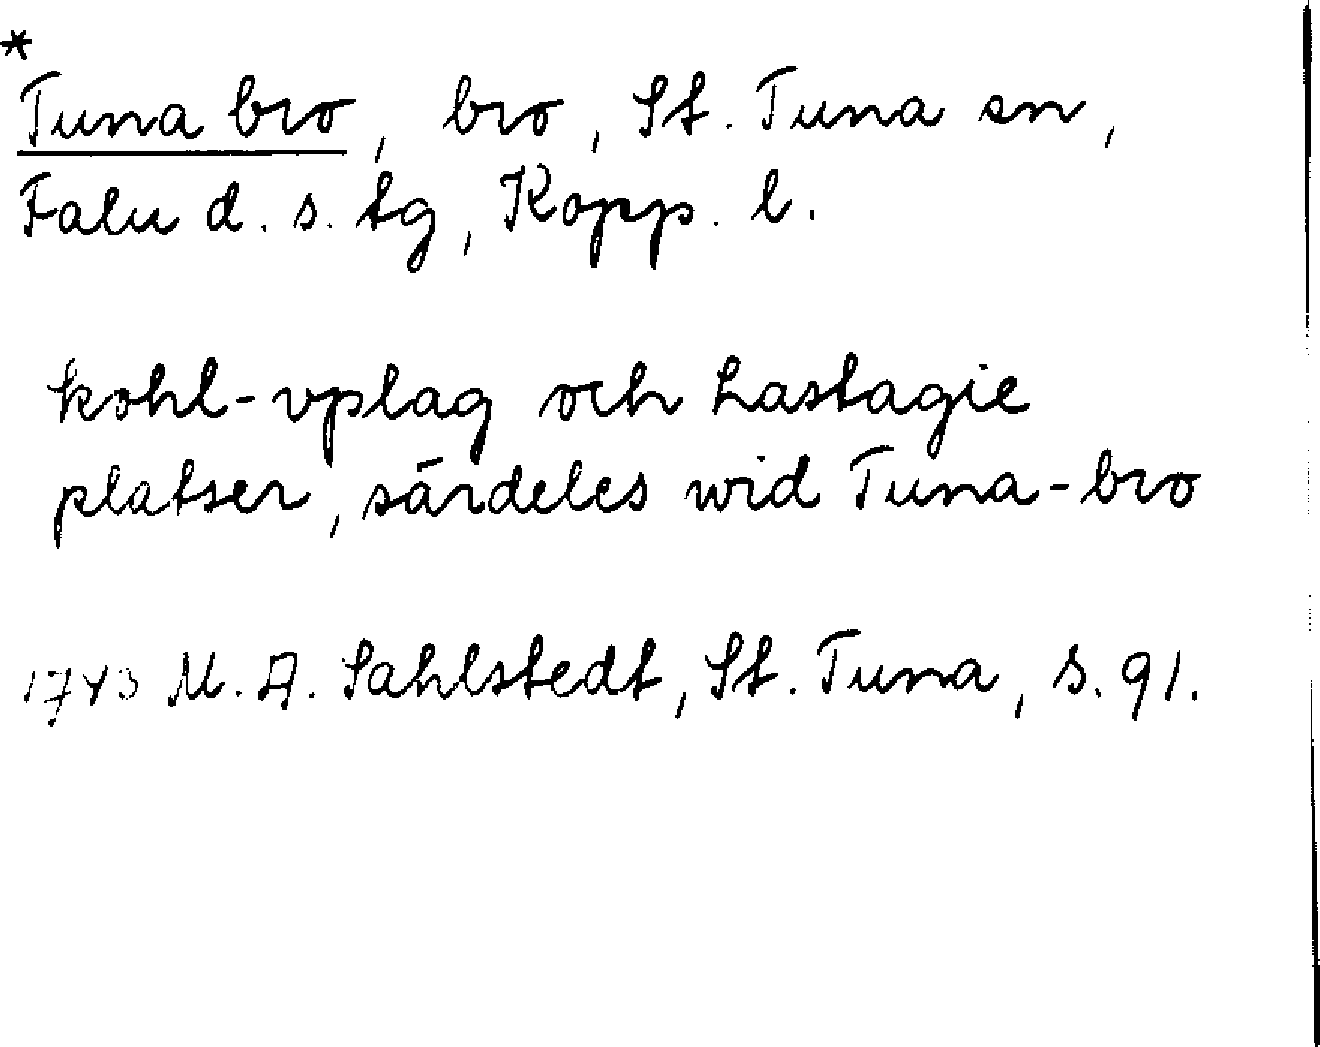 *
Tuna bro, bro, St. Tuna sn,
Falu d. s. tg, Kopp. l.
kohl-vplag och Lastagie
platser, särdeles wid Tuna-bro
1743 M. A. Sahlstedt, St. Tuna, s. 91.